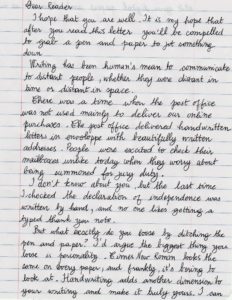 Dear Reader,
I hope that you are well. It is my hope that
after you read this letter you'll be compelled
to grab a pen and paper to jot something
down.
Writing has been human's mean to communicate
to distant people, whether they were distant in
time or distant in space.
There was a time when the post office
was not used mainly to deliver our online
purchases. The post office delivered handwritten
letters in envelope with beautifully written
addresses. People were excited to check their
mailboxes unlike today when they worry about
being summoned for jury duty.
I don't know about you, but the last time
I checked the declaration of independence was
written by hand, and no one likes getting a
typed thank you note.
But what exactly do you loose by ditching the
pen and paper? I'd argue the biggest thing you
loose is personality. Times New Roman looks the
same on every paper, and frankly, it's boring to
look at. Handwriting adds another dimension to
your writing and make it truly yours. I can